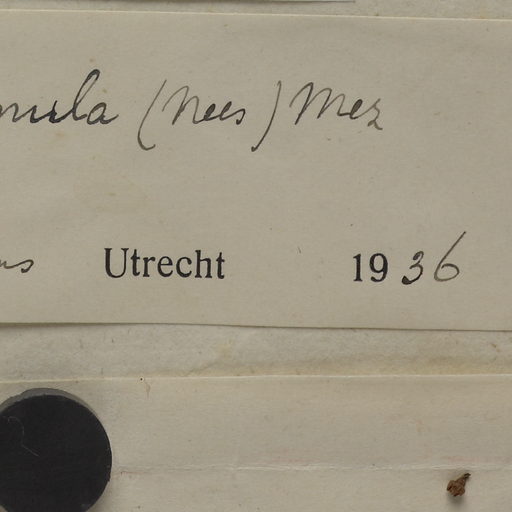 mula (Nees) Mez
ns Utrecht 1936